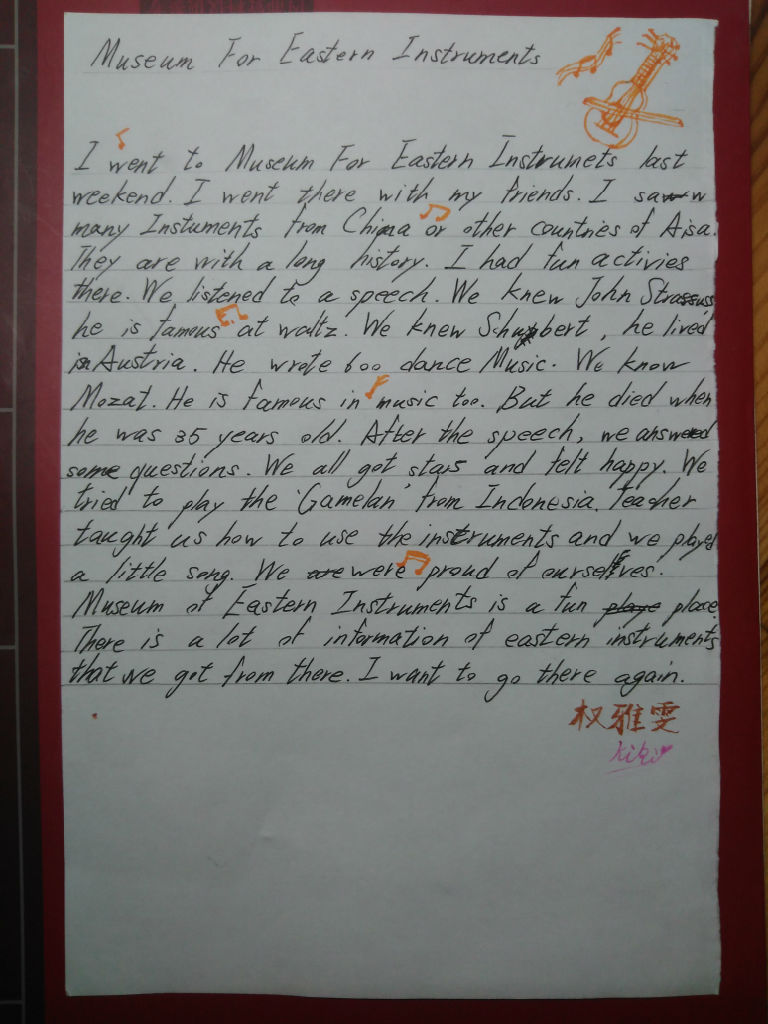 Museum For Eastern Instruments
I went to Museum For Eastern Instrumets last
weekend. I went there with my friends. I saw
many Instuments from China or other countries of Aisa.
They are with a long history. I had fun activies
there. We listened to a speech. We knew John Strassuss
he is famous at waltz. We knew Schubert, he lived
in Austria. He wrote 600 dance Music. We know
Mozat. He is famous in music too. But he died when
he was 35 years old. After the speech, we answered
some questions. We all got stars and felt happy. We
tried to play the 'Gamelan' from Indonesia. Teacher
taught us how to use the instruments and we played
a little song. We were proud of ourselves.
Museum of Eastern Instruments is a fun place.
There is a lot of information of eastern instruments
that we got from there. I want to go there again.
权雅雯
kiki